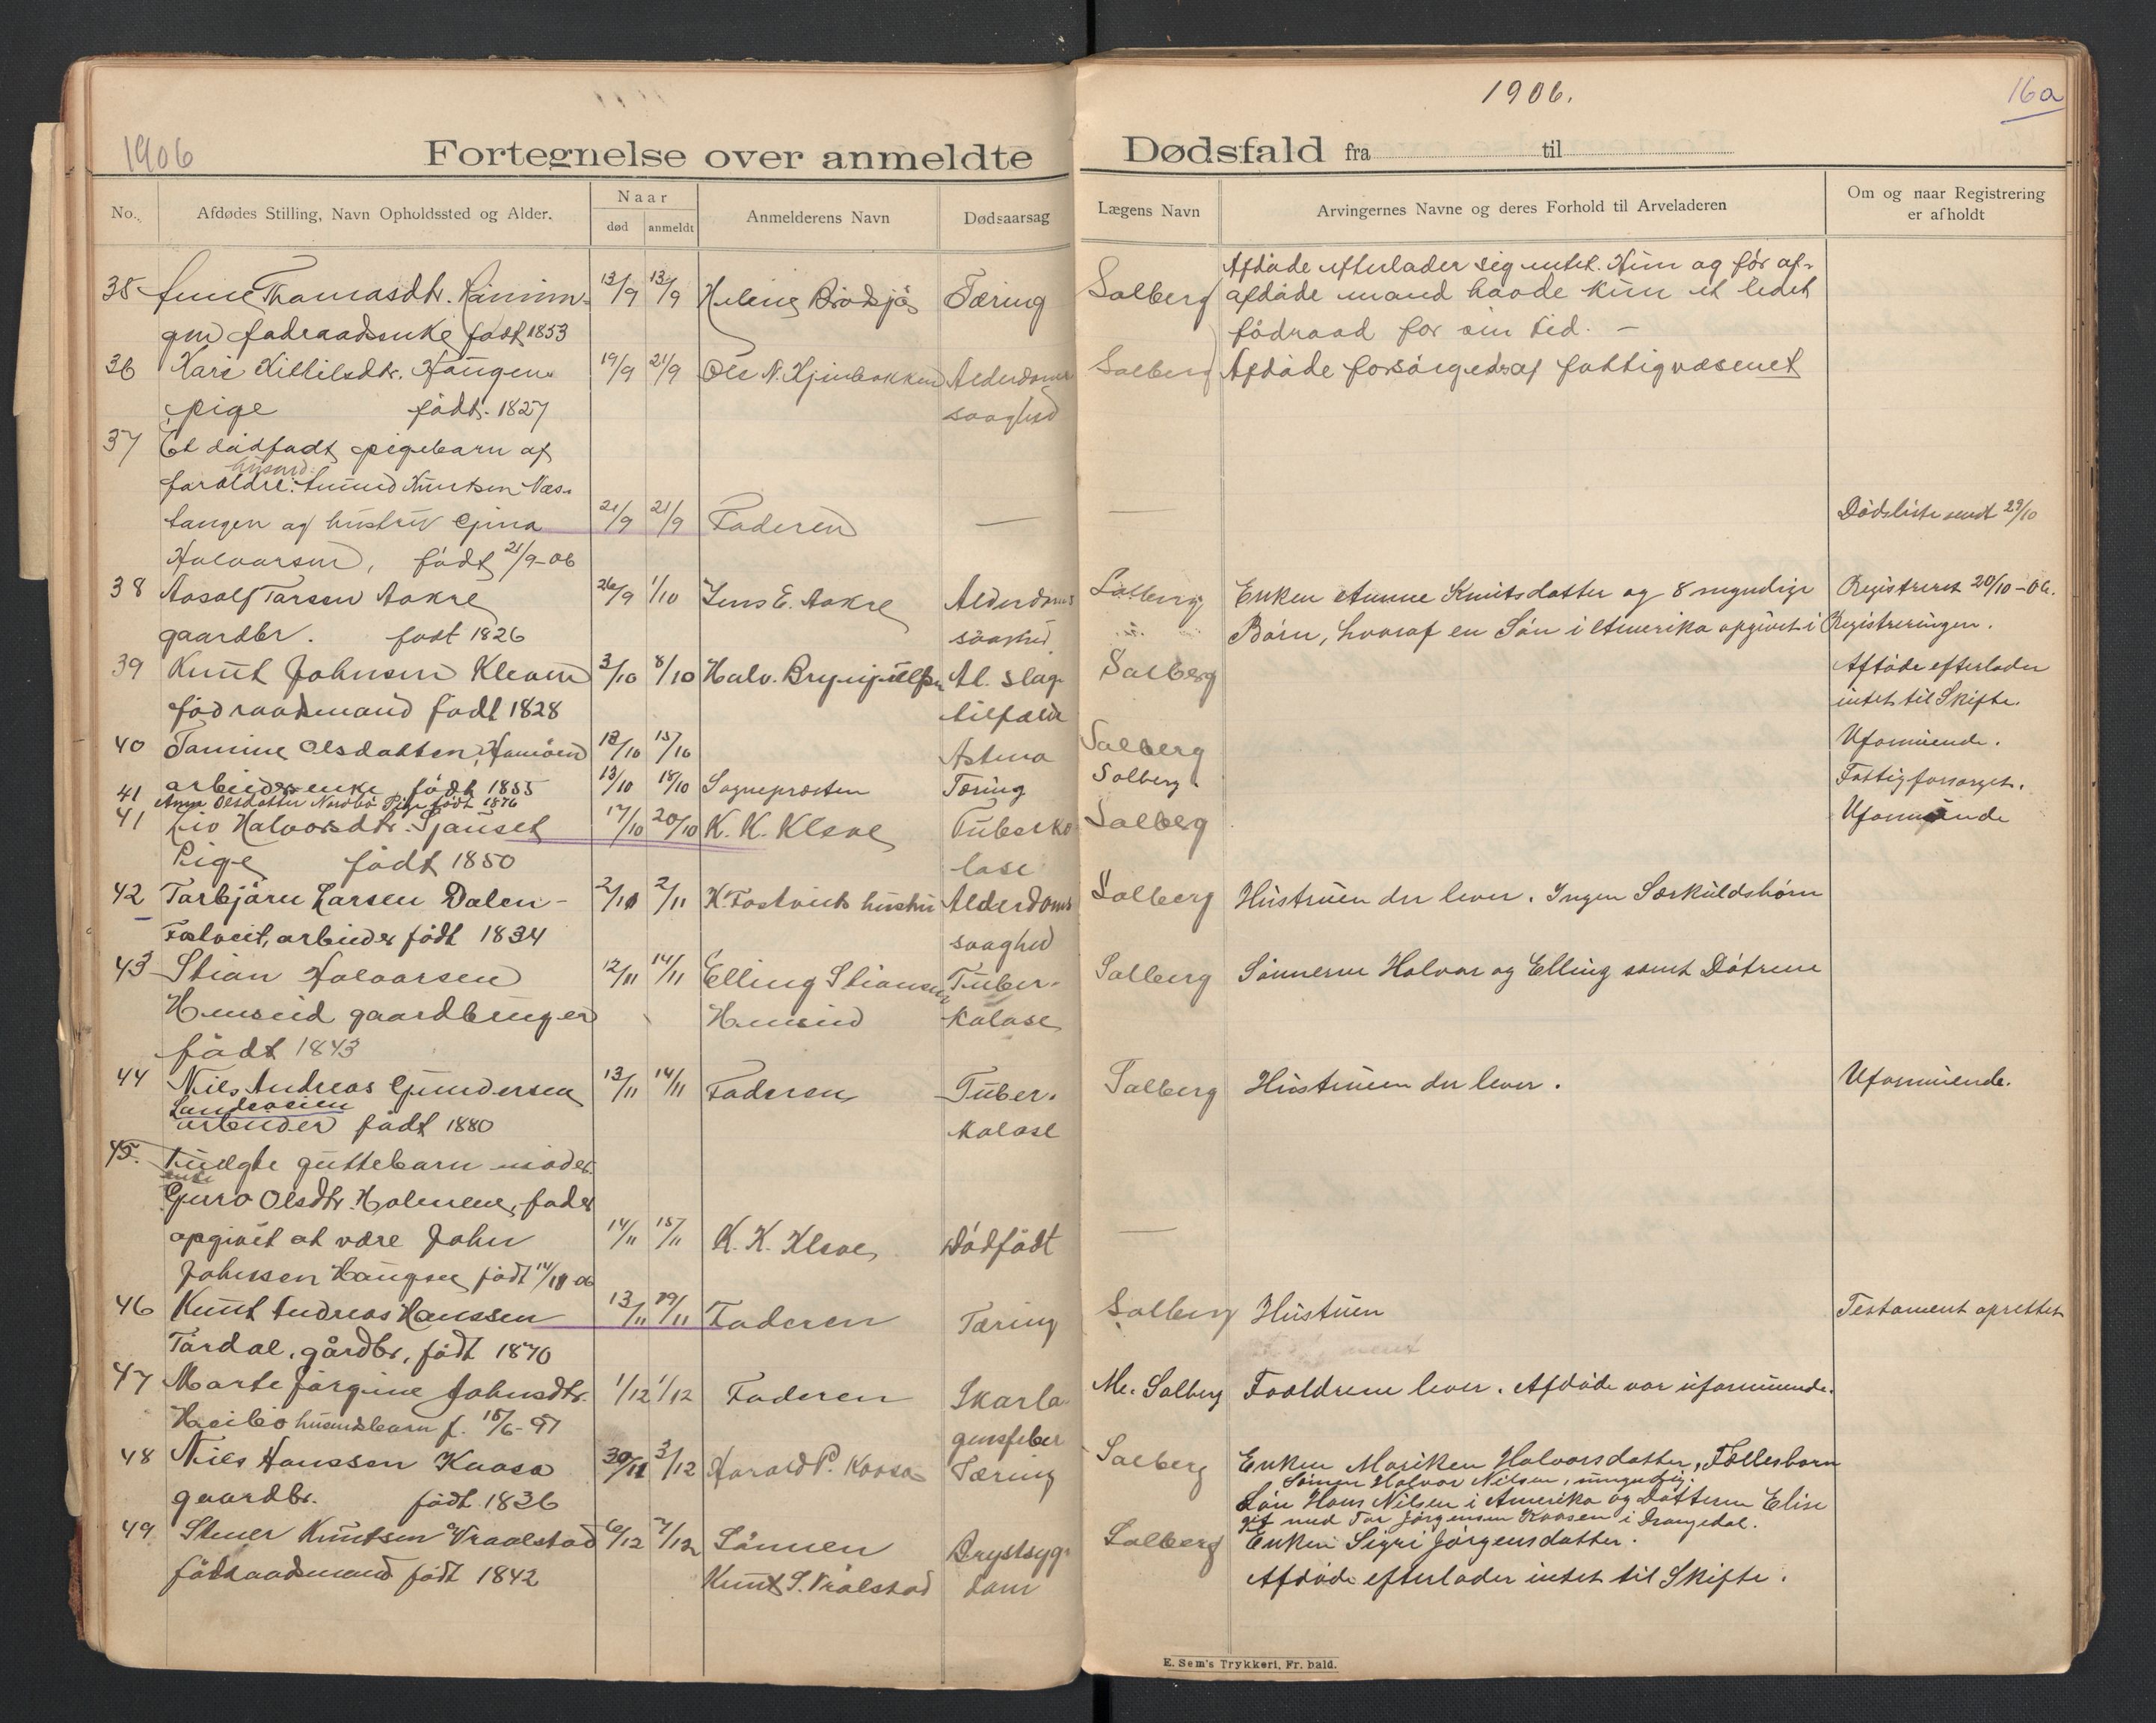 1906.
16a
1906
Fortegnelse over anmeldte Dødsfald fra til
No. Afdødes Stilling, Navn Opholdssted og Alder. Naar død anmeldt Anmelderens Navn Dødsaarsag Lægens Navn Arvingernes Navne og deres Forhold til Arveladeren Om og naar Registrering er afholdt
Afdøde efterlader sig intet. Hun og før af-
35 Anne Thomasdtr. 13/9 13/9 Tæring Salberg afdøde mand havde kun et ledet
født 1853 fødraad for sin tid. —
36 Kari Kittilsdtr. Haugen 19/9 21/9 Ole N. Alderdoms Salberg Afdøde forsørgedes af fattigvæsenet
pige født 1827 svaghed
37 Et dødfødt pigebarn af
husmd.
forældre: Amund Knutsen Næs-
tangen og hustru Gina 21/9 21/9 Faderen — — Dødsliste sendt 29/10
Halvorsen, født 21/9-06
38 Aasolf Tarsen Aakre 26/9 1/10 Jens E. Aakre Alderdoms Salberg Enken Anne Knutsdatter og 8 myndige Registreret 20/10-06.
gaardbr. født 1826 svaghed Børn, hvoraf en Søn i Amerika opgivet i Registreringen.
39 Knut Johnsen Kleven 3/10 8/10 Halv. Brynjulfsen Al. slag- Salberg Afdøde efterlader
fødraadsmand født 1828 tilfælde intet til Skifte.
40 Tomine Olsdatter, 12/10 15/10 Astma Salberg Uformuende.
arbeiderenke født 1855 13/10 18/10 Sognepresten Tæring Salberg Fattigforsørget.
41 Anna Olsdatter Nordbø Pige født 1876
41 Liv Halvorsdtr. Sjauset 17/10 20/10 K. K. Kleve Tuberku Salberg Uformuende
Pige født 1850 lose
42 Tarbjørn Larsen Dalen - 2/10 2/11 K. Tostveits hustru Alderdoms Salberg Hustruen der lever. Ingen Særkuldsbørn
Tostveit, arbeider født 1834 svaghed
43 Stian Halvorsen 12/11 14/11 Elling Stiansen Tuber- Salberg Sønnerne Halvor og Elling samt Døtrene
Henseid gaardbruger Henseid kulose
født 1843
44 Nils Andreas Gundersen 13/11 14/11 Faderen Tuber- Salberg Hustruen der lever. Uformuende.
Sandaasien
arbeider født 1880 kulose
45. Uægte guttebarn moder
enke
Guro Olsdtr. Holmene, fader
opgivet at være John 14/11 15/11 K. K. Kleve Dødfødt —
Johnsen Haugen født 14/11 06
46 Knut Andreas Hanssen 13/11 29/11 Faderen Tæring Salberg Hustruen Testament oprettet
Tørdal, gårdbr, født 1870
47 Marte Jørgine Johnsdtr. 1/12 1/12 Faderen Skarla- Me. Salberg Forældrene lever. Afdøde var uformuende.
husmdsbarn f. 15/6-97 gensfeber
48 Nils Hanssen Kaasa 30/11 3/12 Harald P. Kaasa Tæring Salberg Enken Mariken Halvorsdatter, Fællesbarn
Sønnen Halvor Nilsen, umyndig.
gaardbr. født 1836 Søn Hans Nilsen i Amerika og Datteren Elise
gift med Tor Jørgensen Kaasen i Drangedal.
49 Stener Knutsen Vraalstad 6/12 7/12 Sønnen Brystsyg- Salberg Enken Sigri Jørgensdatter.
fødraadsmand født 1842 Knut S. Vrålstad dom Afdøde efterlader intet til Skifte.
E. Sem's Trykkeri, Fr. hald.